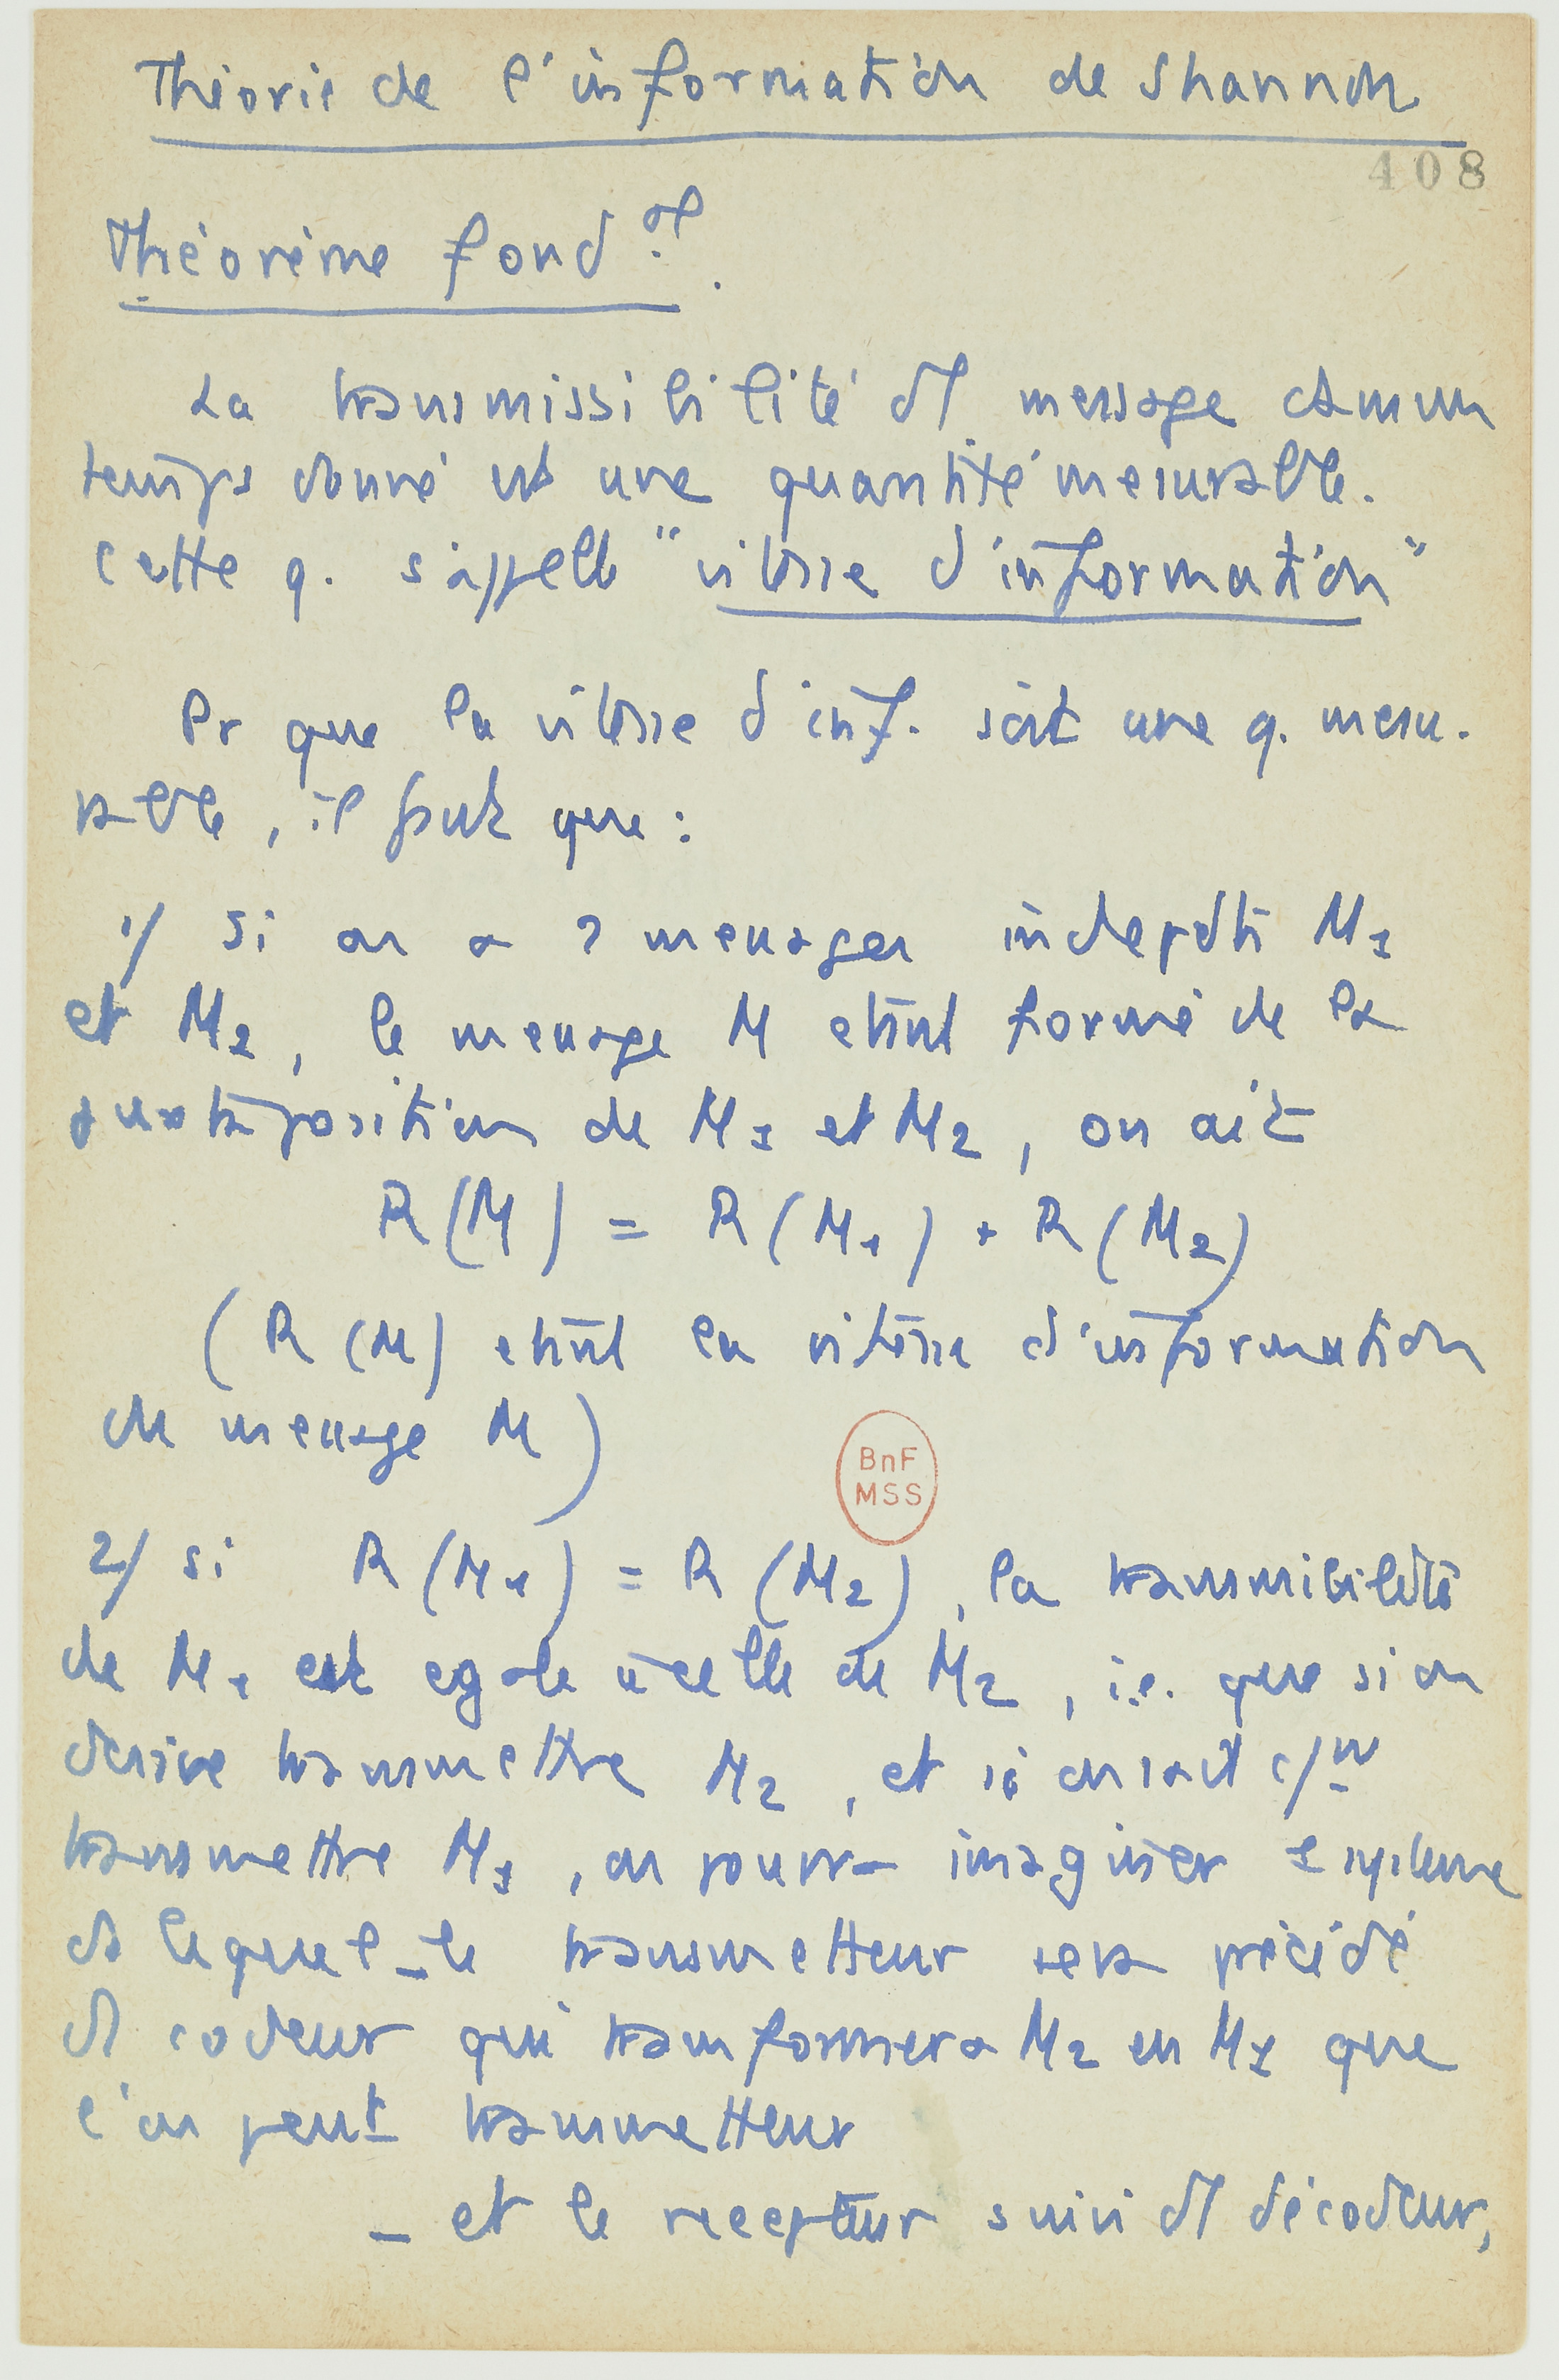 Théorie de l'information de Shannon
408
Théorème fond al.
La transmissibilité d'1 message ds un
temps donné est une quantité mesurable.
Cette q. s'appelle "vitesse d'information"
Pr que la vitesse d'inf. soit une q. mesu-
rable, il faut que :
1/ Si on a 2 messages indepdts M1
et M2, le message M etant formé de la
juxtaposition de M1 et M2, on ait
R(M) = R(M1) + R(M2)
(R(M) etant la vitesse d'information
du message M)
BnF
MSS
2/ si R(M1) = R(M2), la transmibilité
de M1 est egale à celle de M2, i.e. que si on
desire transmettre M2, et si on sait
transmettre M1, on pourra imaginer 1 systeme
ds lequel - le transmetteur sera précédé
d'1 codeur qui transformera M2 en M1 que
l'on peut transmetteur
- et le recepteur suivi d'1 décodeur,